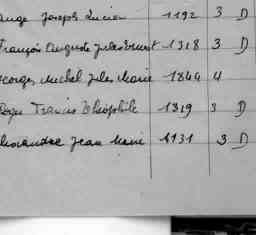 ange Joseph Lucien 1192 3 D
François Auguste Jules Ernest 1318 3 D
Georges Michel Jules Marie 1844 4
Roger Francis Théophile 1319 3 D
Alexandre Jean Marie 1131 3 D